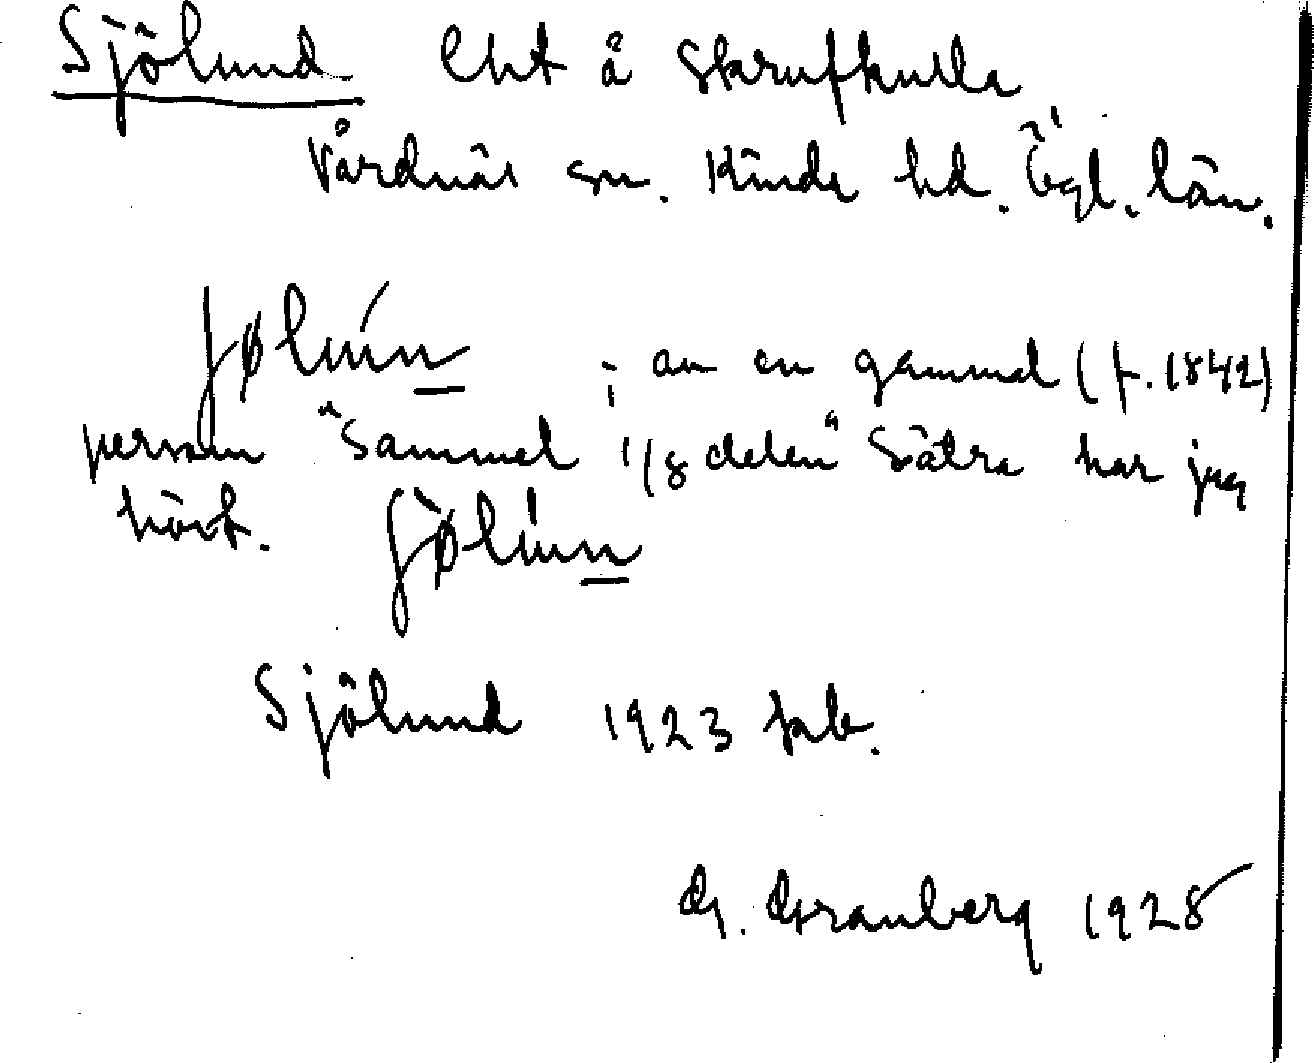 Sjölund Lht å Skrufkulla
Vårdnäs sn. Kinda hd. Ögl. län.
jølùn ; av en gammal (f. 1842)
person "Sammel 1/8 delen" Sätra har jag
hört. jølun
Sjölund 1923 jrb.
G. Granberg 1928